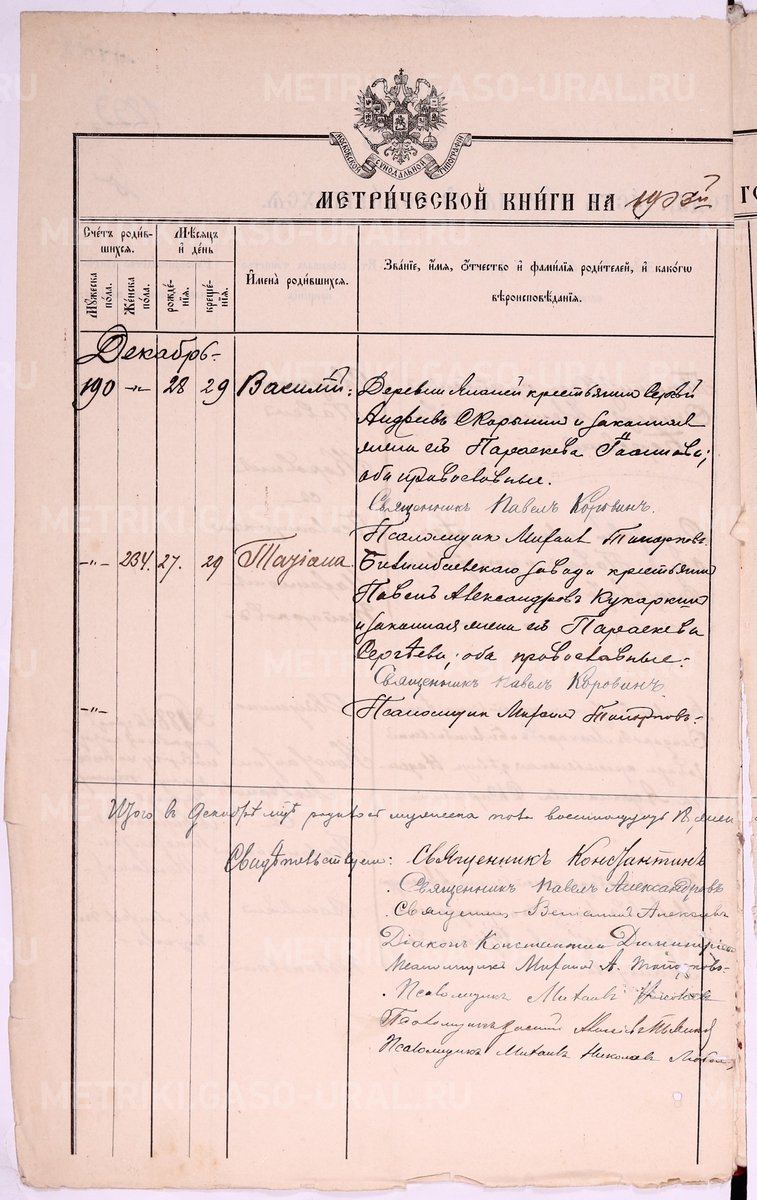 METRIKI.GASO-URAL.RU
МОСКОВСКОЙ СѴНОДАЛЬНОЙ ТИПОГРАФІИ
МЕТРИ́ЧЕСКОЙ КНИ́ГИ НА
ГО
Сче́тъ роди́в-
шихся.
Мѣ́сяцъ
и де́нь
Мꙋ́жеска по́ла.
Же́нска по́ла.
рожде́нія.
креще́нія.
И҆мена̀ роди́вшихся.
Зва́ніе, и҆́мѧ, ѻ҆́тчество и҆ фами́лїѧ роди́телей, и҆ како́гѡ
вѣроисповѣ́данїѧ.
Декабрь
190 -"- 28 29 Василій:
Деревни крестьянинъ Сергѣй
Андреевъ Скорынинъ и законная
жена его Параскева
оба православные.
Священникъ Павелъ Коровинъ.
Псаломщикъ Михаилъ Топорковъ.
-"- 234. 27. 29 Татіана
Билимбаевскаго завода крестьянинъ
Павелъ Александровъ Кухаркинъ
и законная жена его Параскева
Сергѣева; оба православные.
Священникъ Павелъ Коровинъ
-"-
Псаломщикъ Михаилъ Топорковъ.
Итого въ Декабрѣ мцѣ родилось мужеска пола восемнадцать 18, жен
Свидѣтельствуемъ: Священникъ Константинъ
Священникъ Павелъ Александровъ
Священникъ Алексѣевъ
Діаконъ Константинъ Димитріев
Псаломщикъ Михаилъ А. Топорковъ
Псаломщикъ Михаилъ
Псаломщикъ
Псаломщикъ Михаилъ Николаевъ